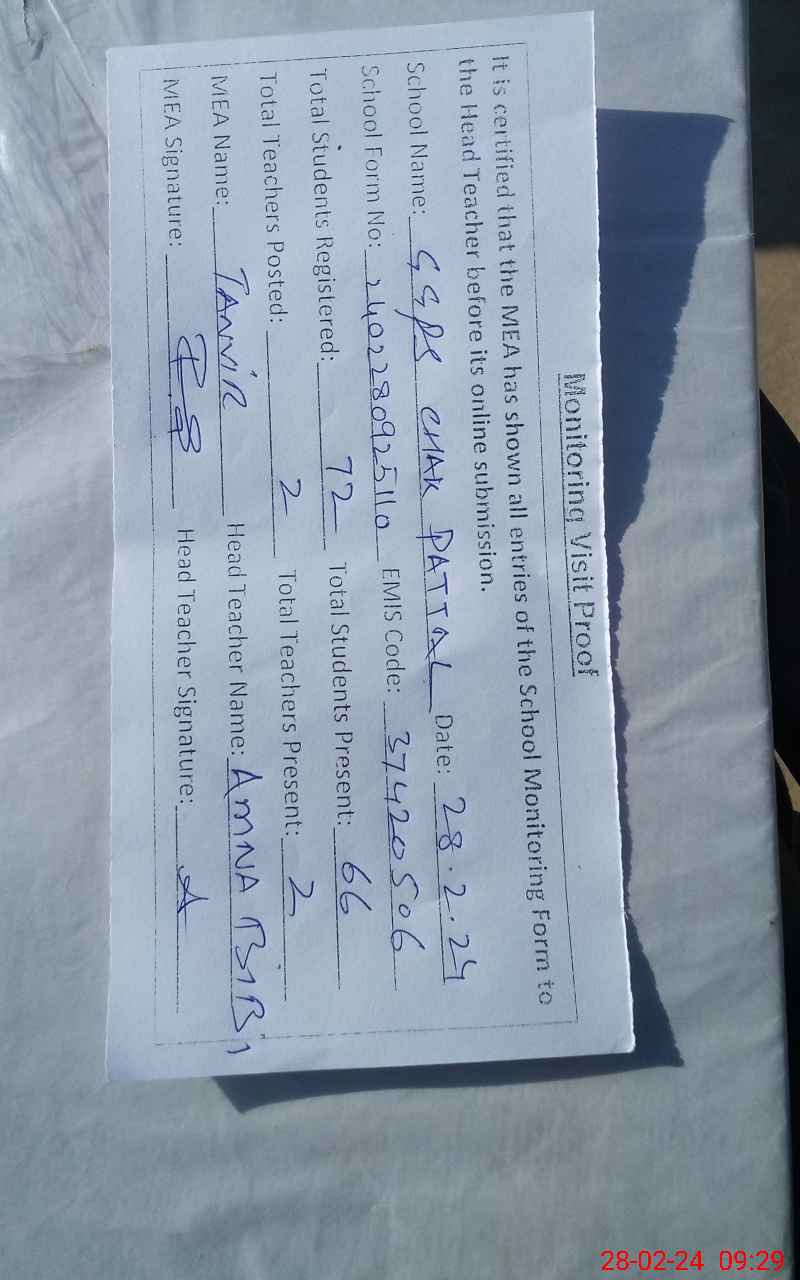 Monitoring Visit Proof
It is certified that the MEA has shown all entries of the School Monitoring Form to
the Head Teacher before its online submission.
School Name: GGPS CHAK PATTAL Date: 28.2.24
School Form No: 240228092511o EMIS Code: 37420506
Total Students Registered: 72 Total Students Present: 66
Total Teachers Posted: 2 Total Teachers Present: 2
MEA Name: TANVIR Head Teacher Name: AMNA BiBi
MEA Signature: Head Teacher Signature: A
28-02-24 09:29